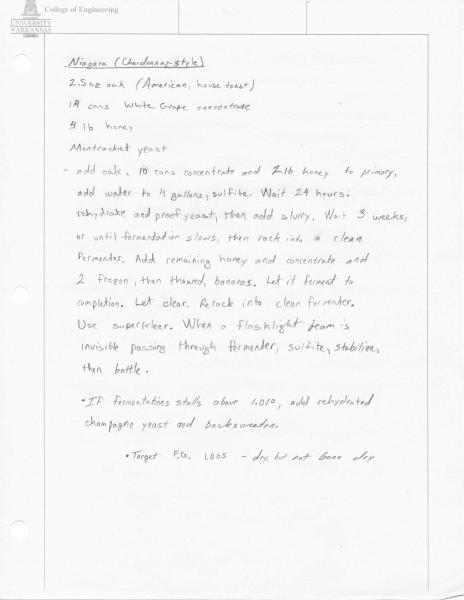 College of Engineering
UNIVERSITY OF
ARKANSAS
Niagara (Chardonnay-style)
2.5 oz oak (American, house toast)
14 cans White Grape concentrate
4 lb honey
Montrachet yeast
- add oak, 10 cans concentrate and 2 lb honey to primary,
add water to 4 gallons, sulfite. Wait 24 hours.
rehydrate and proof yeast, then add slurry. Wait 3 weeks,
or until fermentation slows, then rack into a clean
fermenter. Add remaining honey and concentrate and
2 frozen, then thawed, bananas. Let it ferment to
completion. Let clear. Rerack into clean fermenter.
Use superkleer. When a flashlight beam is
invisible passing through fermenter, sulfite, stabilize,
then bottle.
• If fermentations stalls above 1.010, add rehydrated
champagne yeast and backsweeten.
• Target F.G. 1.005 - dry, but not bone dry